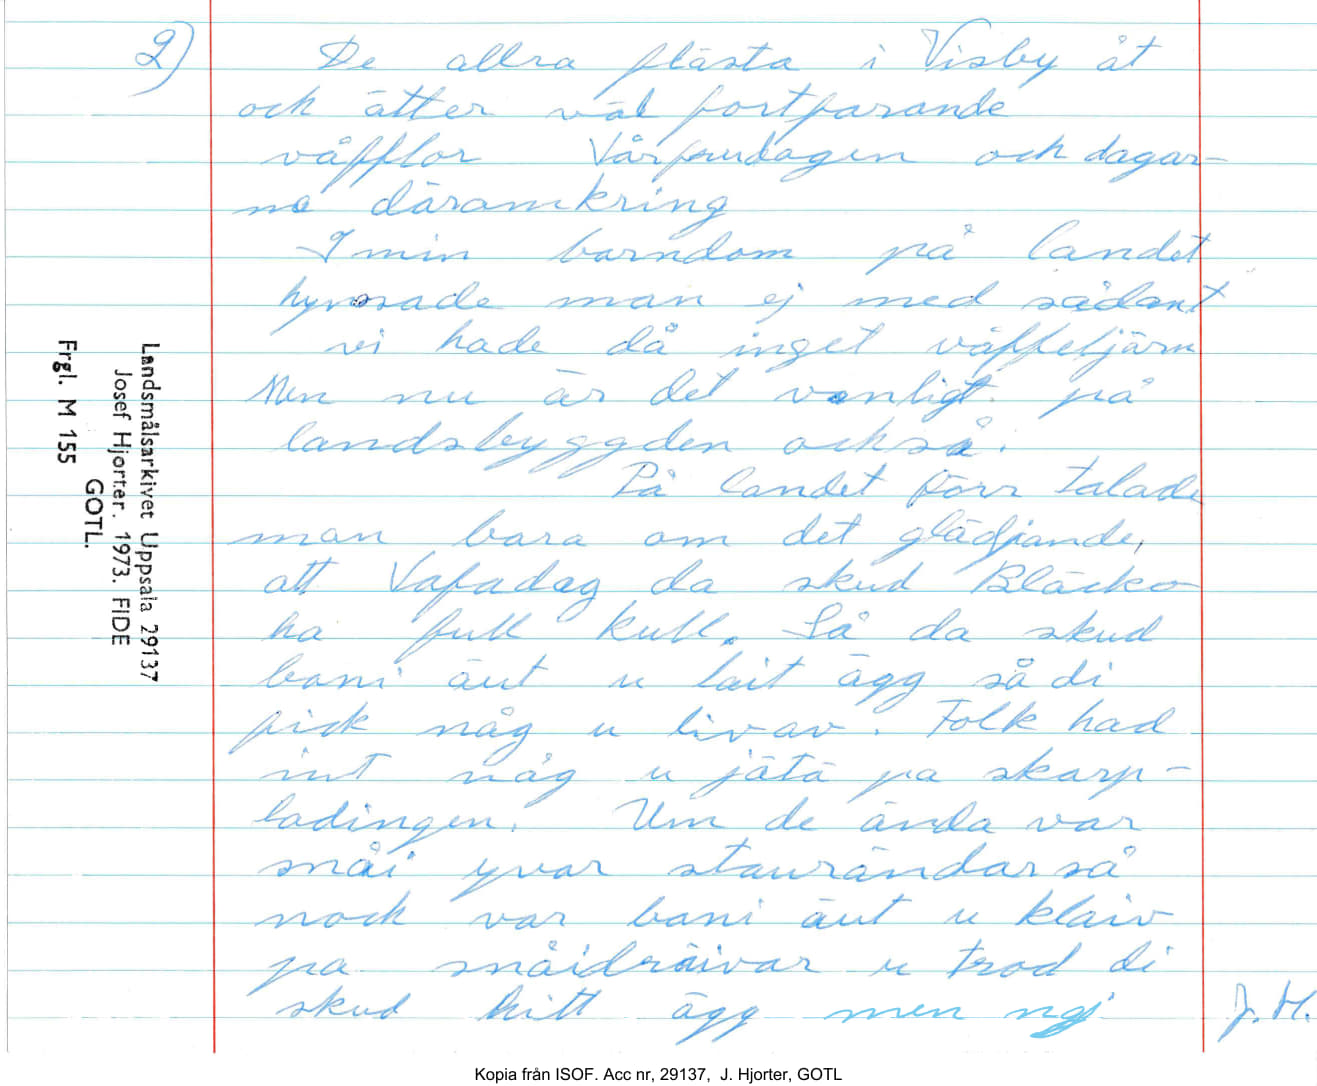 2)
De allra flästa i Visby åt
och ätter väl fortfarande
våfflor Vårfrudagen och dagar-
na däromkring
I min barndom på landet
hyvsade man ej med sådant
vi hade då inget våffeljärn
Men nu är det vanligt på
landsbyggden också.
På landet förr talade
man bara om det glädjande,
att Vafadag da skud Bläcko
ha full kull. Så da skud
bani äut u lait ägg så di
fick någ u livav. Folk had
int någ u jätä pa skarp-
ladingen. Um de ända var
snåi yvar staurändar så
nock var bani äut u klaiv
pa snåidräivar u trod di
skud hitt ägg men nej
J. H.
Landsmålsarkivet Uppsala 29137
Josef Hjorter. 1973. FIDE
GOTL.
Frgl. M 155
Kopia från ISOF. Acc nr, 29137, J. Hjorter, GOTL